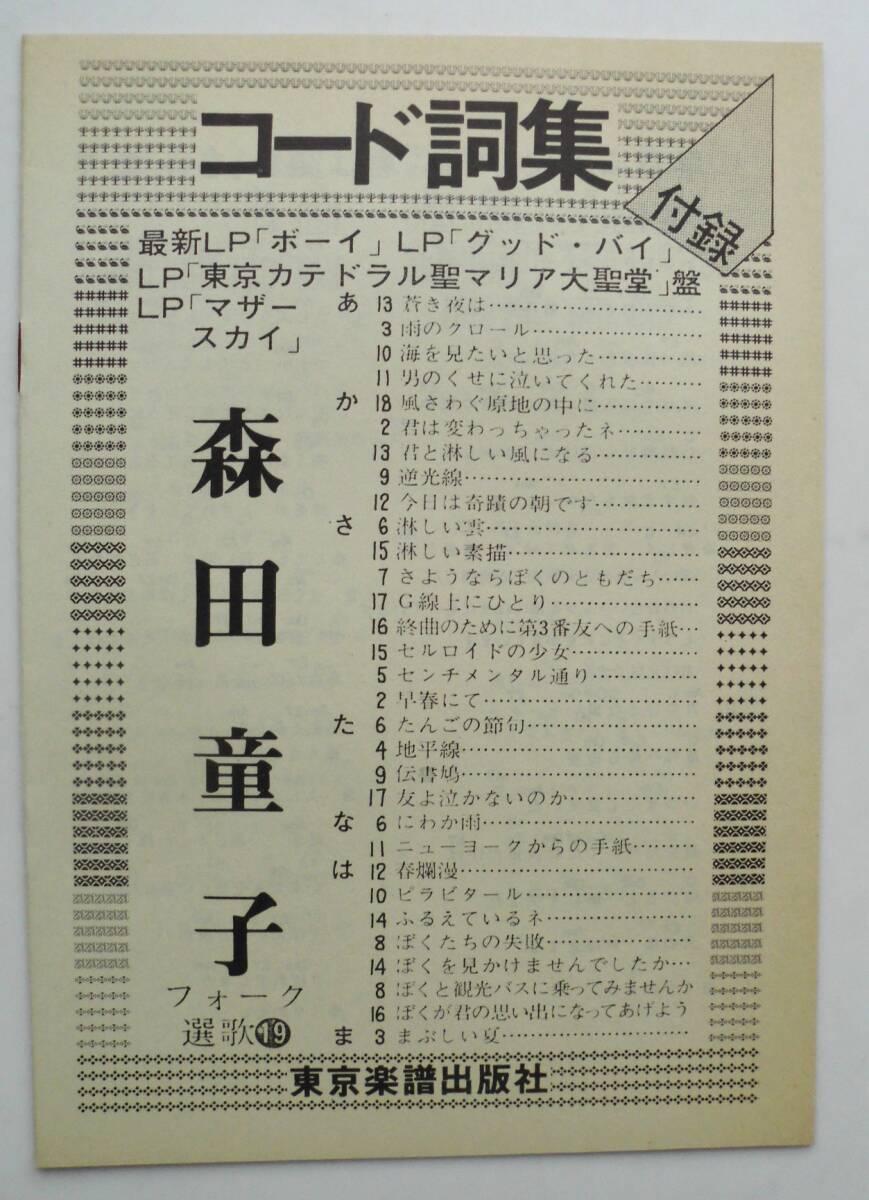 コード詞集
付録
最新LP「ボーイ」LP「グッド・バイ」
LP「東京カテドラル聖マリア大聖堂」盤
LP「マザー
スカイ」
森田童子
フォーク
選歌⓳
あ 13 蒼き夜は…………………………
3 雨のクロール……………………
10 海を見たいと思った……………
11 男のくせに泣いてくれた………
か 18 風さわぐ原地の中に……………
2 君は変わっちゃったネ…………
13 君と淋しい風になる……………
9 逆光線……………………………
12 今日は奇蹟の朝です……………
さ 6 淋しい雲…………………………
15 淋しい素描………………………
7 さようならぼくのともだち……
17 G線上にひとり…………………
16 終曲のために第3番友への手紙…
15 セルロイドの少女………………
5 センチメンタル通り……………
2 早春にて…………………………
た 6 たんごの節句……………………
4 地平線……………………………
9 伝書鳩……………………………
17 友よ泣かないのか………………
な 6 にわか雨…………………………
11 ニューヨークからの手紙………
は 12 春爛漫……………………………
10 ピラビタール……………………
14 ふるえているネ…………………
8 ぼくたちの失敗…………………
14 ぼくを見かけませんでしたか…
8 ぼくと観光バスに乗ってみませんか
16 ぼくが君の思い出になってあげよう
ま 3 まぶしい夏………………………
東京楽譜出版社